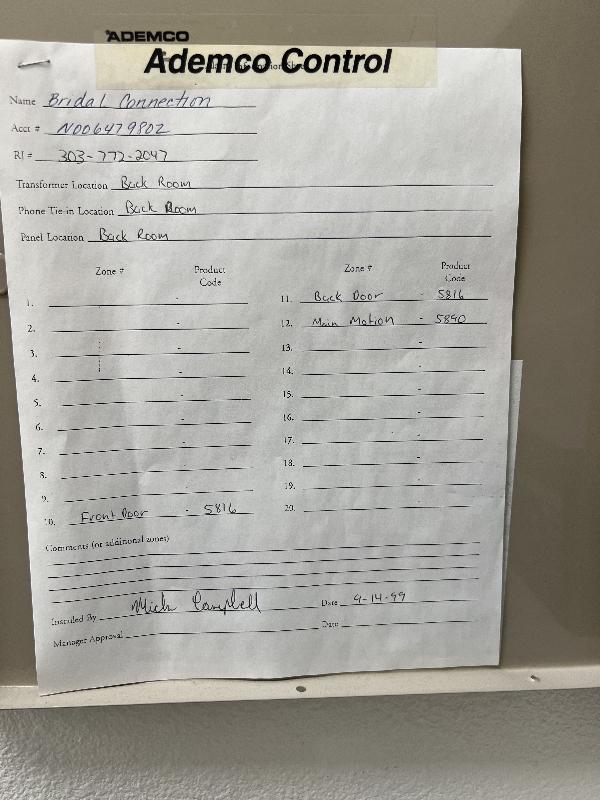 ADEMCO
Ademco Control
Name Bridal Connection
Acct # N006479802
RJ # 303-772-2047
Transformer Location Back Room
Phone Tie-in Location Back Room
Panel Location Back Room
Zone # Product Code
1. -
2. -
3. -
4. -
5. -
6. -
7. -
8. -
9. -
10. Front Door - 5816
Zone # Product Code
11. Back Door - 5816
12. Main Motion - 5890
13. -
14. -
15. -
16. -
17. -
18. -
19. -
20. -
Comments (or additional zones)
Installed By Mich Campbell Date 9-14-99
Manager Approval Date